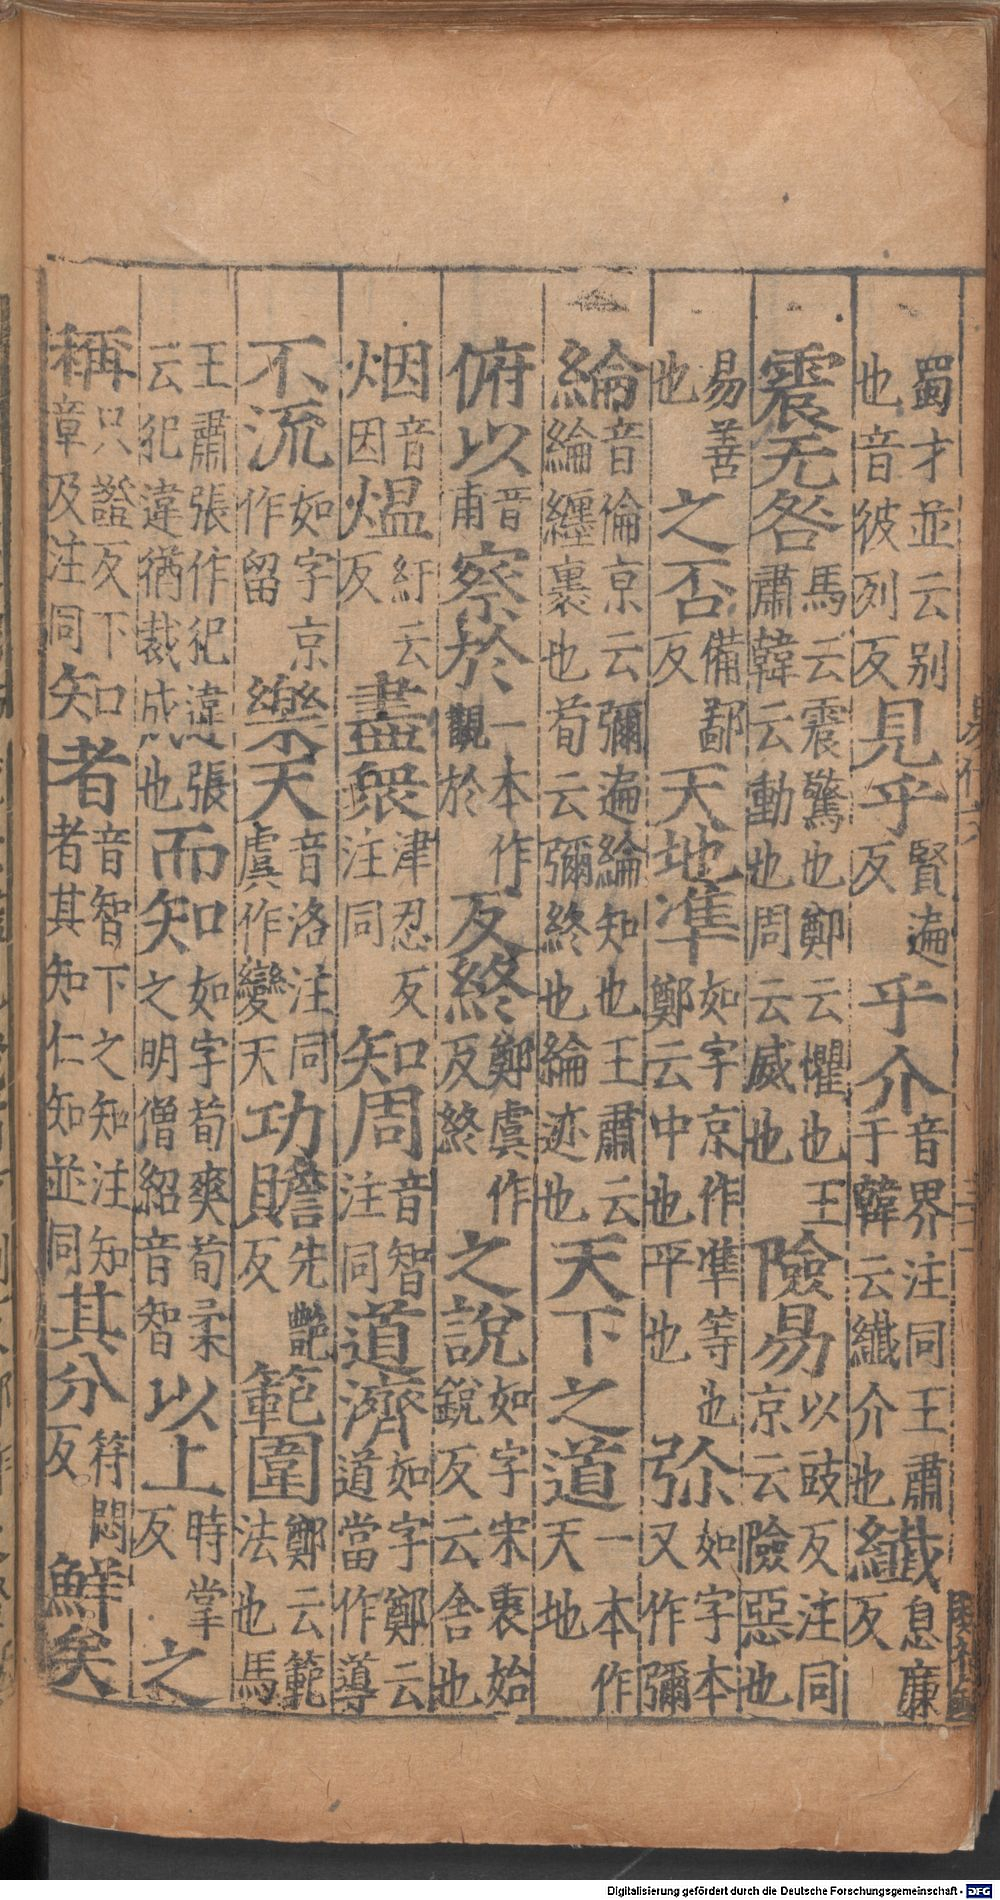 蜀才並云别也音彼列反見乎賢遍反乎介音界注同王肅于韓云纖介也纖息廉反
震无咎馬云震驚也鄭云懼也王肅韓云動也周云威也險易以豉反注同京云險惡也
易善也之否備鄙反天地凖如字京作凖等也鄭云中也平也弥如字本又作彌
綸音倫京云彌遍綸知也王肅云綸纏裹也荀云彌終也綸迹也天下之道一本作天地
俯以音甫察於一本作觀於反終鄭虞作及終之說如字宋衷始銳反云舍也
烟音因熅紆云反盡衆津忍反注同知周音智注同道濟如字鄭云道當作導
不流如字京作留樂天音洛注同虞作變天功贍先艷反範圍鄭云範法也馬
王肅張作犯違張云犯違猶裁成也而知如字荀爽荀柔之明僧紹音智以上時掌反之
稱只證反下章及注同知者音智下之知注知者其知仁知並同其分符悶反鮮矣
Digitalisierung gefördert durch die Deutsche Forschungsgemeinschaft - DFG